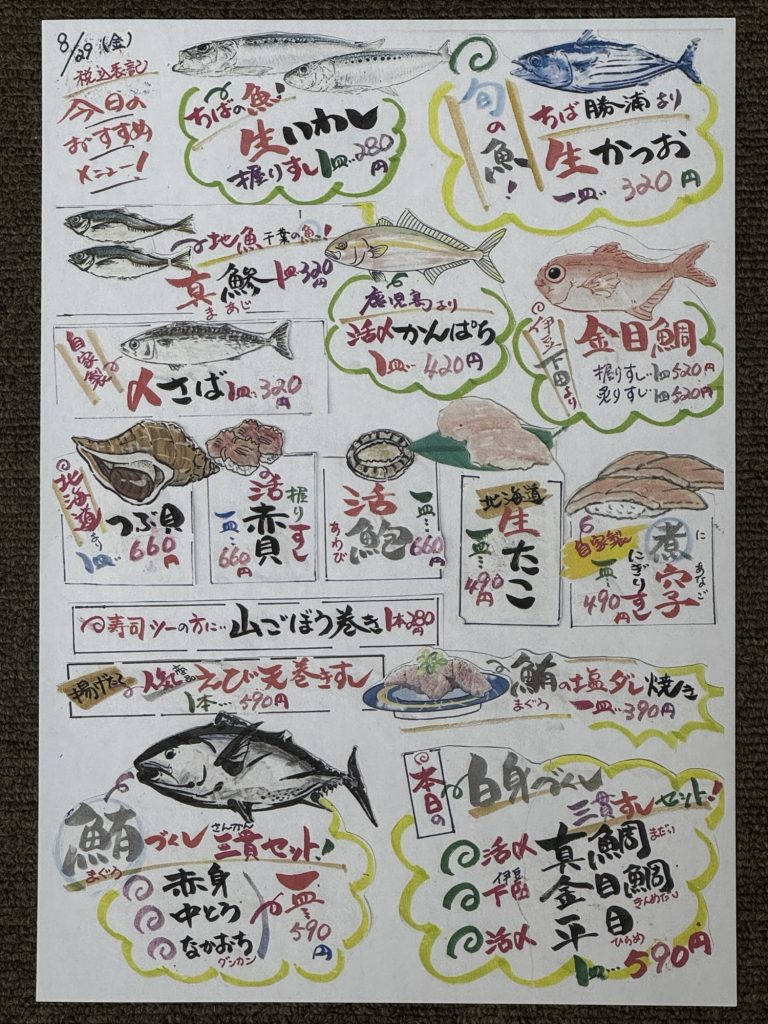 8/29(金)
税込表記
今日の
おすすめ
メニュー!
ちばの魚!
生いわし
握りすし1皿…280円
旬の魚!
ちば勝浦より
生かつお
一皿…320円
地魚千葉の魚!
真鯵1皿…320円
まあじ
鹿児島より
活〆かんぱち
1皿…420円
伊豆下田より
金目鯛
握りすし…1皿520円
炙りすし…1皿520円
自家製
〆さば1皿…320円
北海道より
つぶ貝
1皿…660円
活赤貝
握りすし
一皿…660円
活鮑
あわび
一皿…660円
北海道
生たこ
一皿…490円
自家製
煮穴子
に あなご
にぎりすし
一皿…490円
寿司ツーの方に…山ごぼう巻き1本280円
揚げたて
人気商品
えび天巻きすし
1本…590円
鮪の塩ダレ焼き
まぐろ
一皿…390円
鮪づくし三貫セット!
まぐろ
さんかん
赤身
中とろ
なかおち
グンカン
一皿…590円
本日の
白身づくし
三貫すしセット!
活〆 真鯛 まだい
伊豆下田 金目鯛 きんめだい
活〆 平目 ひらめ
1皿…590円